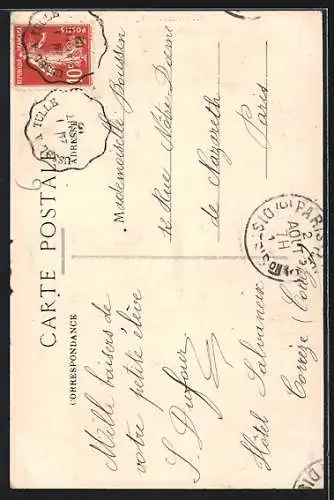 CARTE POSTALE
CORRESPONDANCE
ADRESSE
Mille baisers de
votre petite élève
S. Dufour
Hôtel Salvaneix
Corrèze (Corrèze)
Mademoiselle Boussin
12 Rue Notre Dame
de Nazareth
Paris
REPUBLIQUE FRANÇAISE
POSTES
10c
A TULLE
PARIS
AOUT